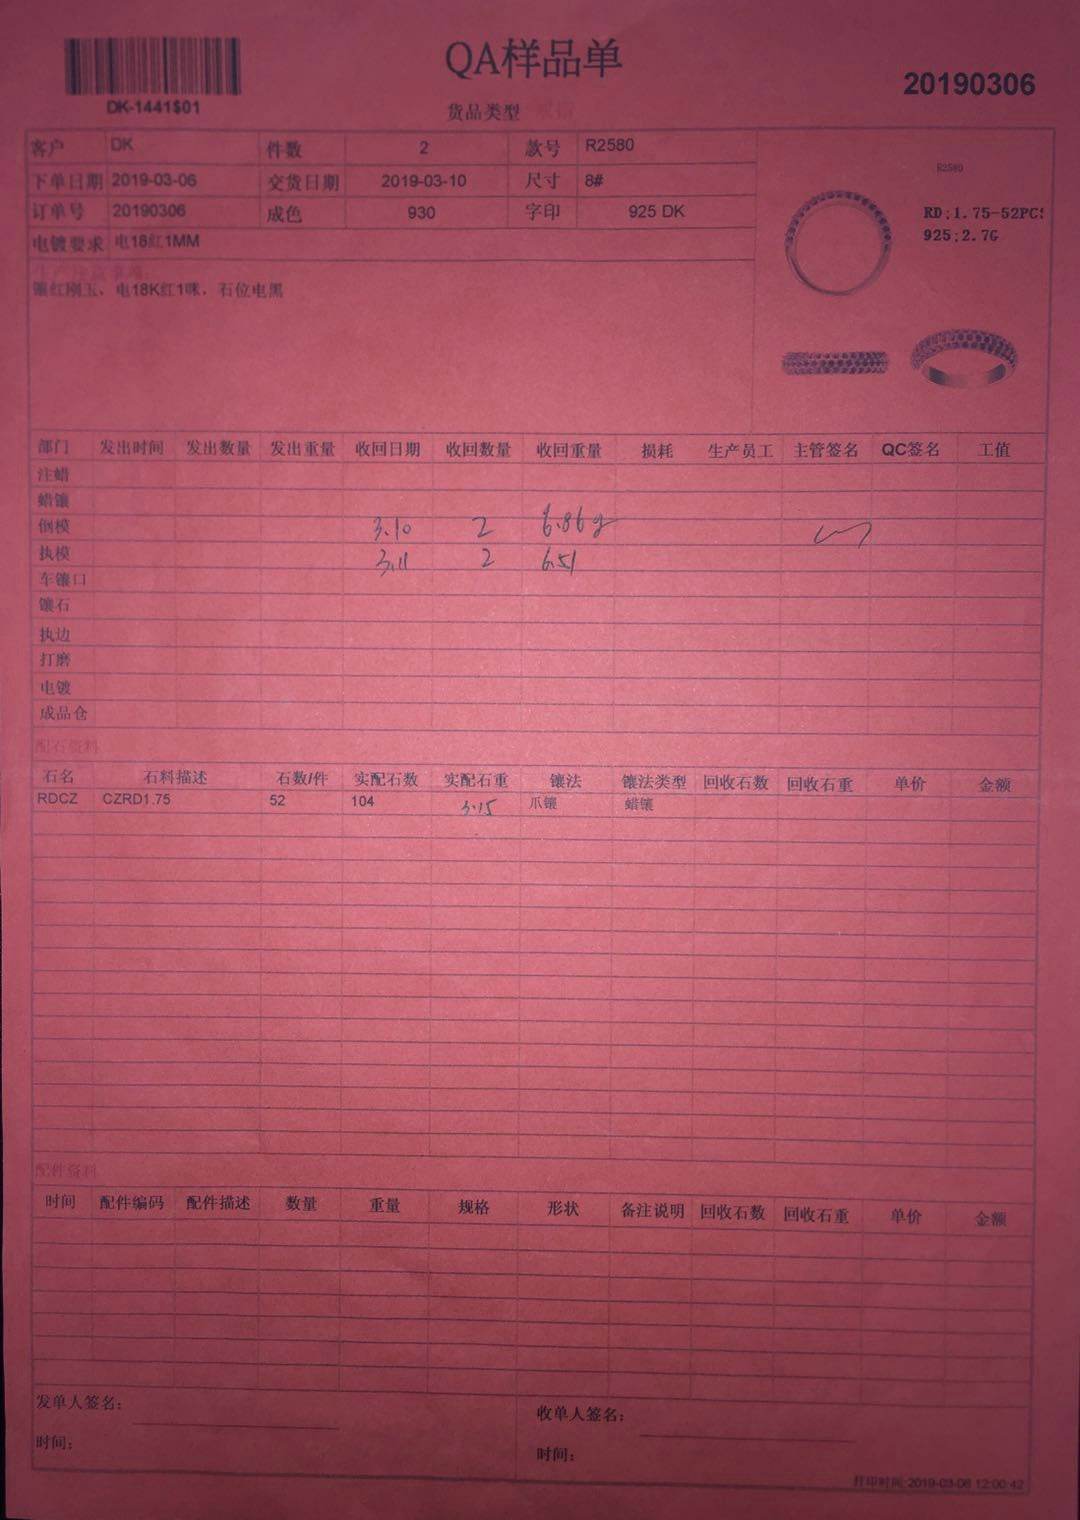 QA样品单
DK-1441$01
20190306
货品类型
客户 DK 件数 2 款号 R2580
下单日期 2019-03-06 交货日期 2019-03-10 尺寸 8#
订单号 20190306 成色 930 字印 925 DK
电镀要求 电18红1MM
镶红刚玉、电18K红1咪、石位电黑
R2580
RD;1.75-52PCS
925;2.7G
部门 发出时间 发出数量 发出重量 收回日期 收回数量 收回重量 损耗 生产员工 主管签名 QC签名 工值
注蜡
蜡镶
倒模 3.10 2 6.86g
执模 3.11 2 6.51
车镶口
镶石
执边
打磨
电镀
成品仓
配石资料
石名 石料描述 石数/件 实配石数 实配石重 镶法 镶法类型 回收石数 回收石重 单价 金额
RDCZ CZRD1.75 52 104 3.15 爪镶 蜡镶
配件资料
时间 配件编码 配件描述 数量 重量 规格 形状 备注说明 回收石数 回收石重 单价 金额
发单人签名: 收单人签名:
时间: 时间:
打印时间:2019-03-06 12:00:42